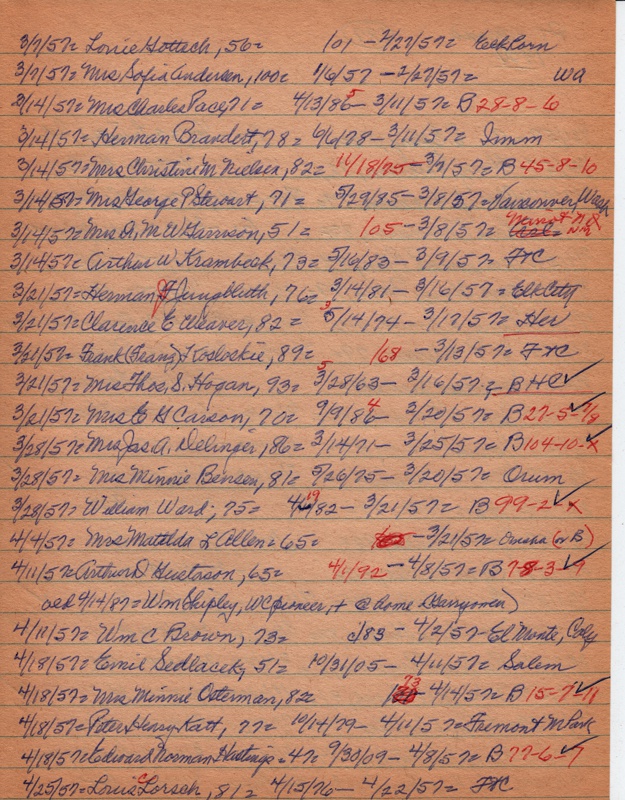 3/7/57= Lonie Gottsch, 56= /01 - 2/27/57= Elkhorn
3/7/57= Mrs Sofia Andersen, 100= 1/6/57 - 2/27/57= Wa
3/14/57= Mrs Charles Pace, 71= 4/13/86 5 - 3/11/57= B 28-8-6
3/14/57= Herman Brandert, 78= 6/6/78 - 3/11/57= Imm
3/14/57= Mrs Christine M Nielsen, 82= 11/18/75 - 3/9/57= B 45-8-10
3/14/57= Mrs George P Stewart, 71= 5/29/85 - 3/8/57= Vancouver, Wash
3/14/57= Mrs A. M. W Garrison, 51= /05 - 3/8/57= Minot N D
3/14/57= Arthur W Krambeck, 73= 5/16/83 - 3/9/57= FtC
3/21/57= Herman F Jungbluth, 76= 3/14/81 - 3/16/57= Elk City
3/21/57= Clarence E Weaver, 82= 3/14/74 - 3/17/57= Her
3/21/57= Frank (Franz) Koslockie, 89= /68 - 3/13/57= FtC
3/21/57= Mrs Thos. S. Hogan, 93= 3/28/63 5 - 3/16/57= BHC ✓
3/21/57= Mrs E G Carson, 70= 9/9/86 4 - 3/20/57= B 27-5-7/8 ✓
3/28/57= Mrs Jas A. Delinger, 86= 3/14/71 - 3/25/57= B 104-10-x ✓
3/28/57= Mrs Minnie Bensen, 81= 5/26/75 - 3/20/57= Orum
3/28/57= William Ward, 75= 4/19/82 - 3/21/57= B 99-2 ✓ x
4/4/57= Mrs Matilda L Allen= 65= - 3/21/57= Omaha (or B) ✓
4/11/57= Arthur D Gustafson, 65= 4/1/92 - 4/8/57= B 78-3-9 ✓
aed 9/14/87= Wm Shipley, WC pioneer, + @ home (Garrymen)
4/11/57= Wm C Brown, 73= c/83 - 4/2/57- El Monte, Calif
4/18/57= Emil Sedlacek, 51= 10/31/05 - 4/11/57= Salem
4/18/57= Mrs Minnie Osterman, 82= 73 - 4/14/57= B 15-7-11 ✓
4/18/57= Peter Henry Katt, 77= 10/14/79 - 4/11/57= Fremont M Park
4/18/57= Edward Norman Hastings= 47= 9/30/09 - 4/8/57= B 77-6-7 ✓
4/25/57= Louis C Lorsch, 81= 4/15/76 - 4/22/57= FtC